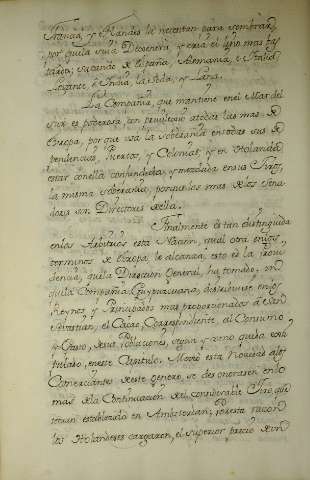 Francia, y Flandes le necesitan para sembrar,
por quila
tardio; sacando de España, Alemania, e Italia
Levante e India, la seda, y Lana.
La Compañia, que mantiene en el Mar del
Sur es poderosa con privilegio a todas las mas de
Europa, porque usa la soberania en todas sus de
pendencias, Puertos, y Colonias, y en Holanda
estar con ella confundida, y mezclada en su Giro,
la misma soberania, porque los mas de los Sena
dores son Directores de ella.
Finalmente es tan distinguida
en los Arbitrios esta Nacion, qual otra en los
terminos de Europa le alcanza, esto es la provi
dencia, que la Direccion General, ha tomado, en
que la Compañia Guipuzcuana, destribuise en los
Reynos, y Principados mas proporcionados a San
Sevastian, el Cacao, Correspondiente, al Consumo
y Gasto, de sus Poblaciones, segun y como queda capi
tulado, en este Capitulo. Motivó esta Novedad a los
Comerciantes de este genero, se desonerasen en lo
mas de la Continuacion del considerable Giro, que
tenian establecido en Amsterdam; por esta razon
los Holandeses cargaron, el superior precio de un